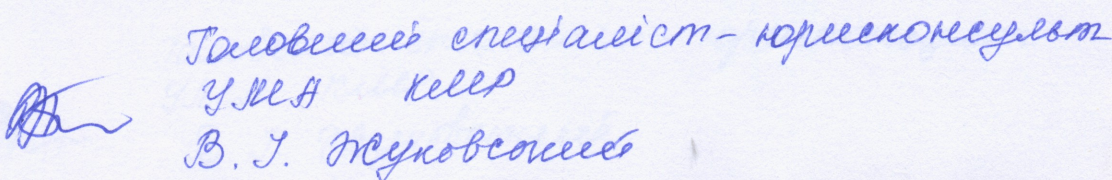 Головний спеціаліст - юрисконсульт
УМА КМР
В. І. Жуковський